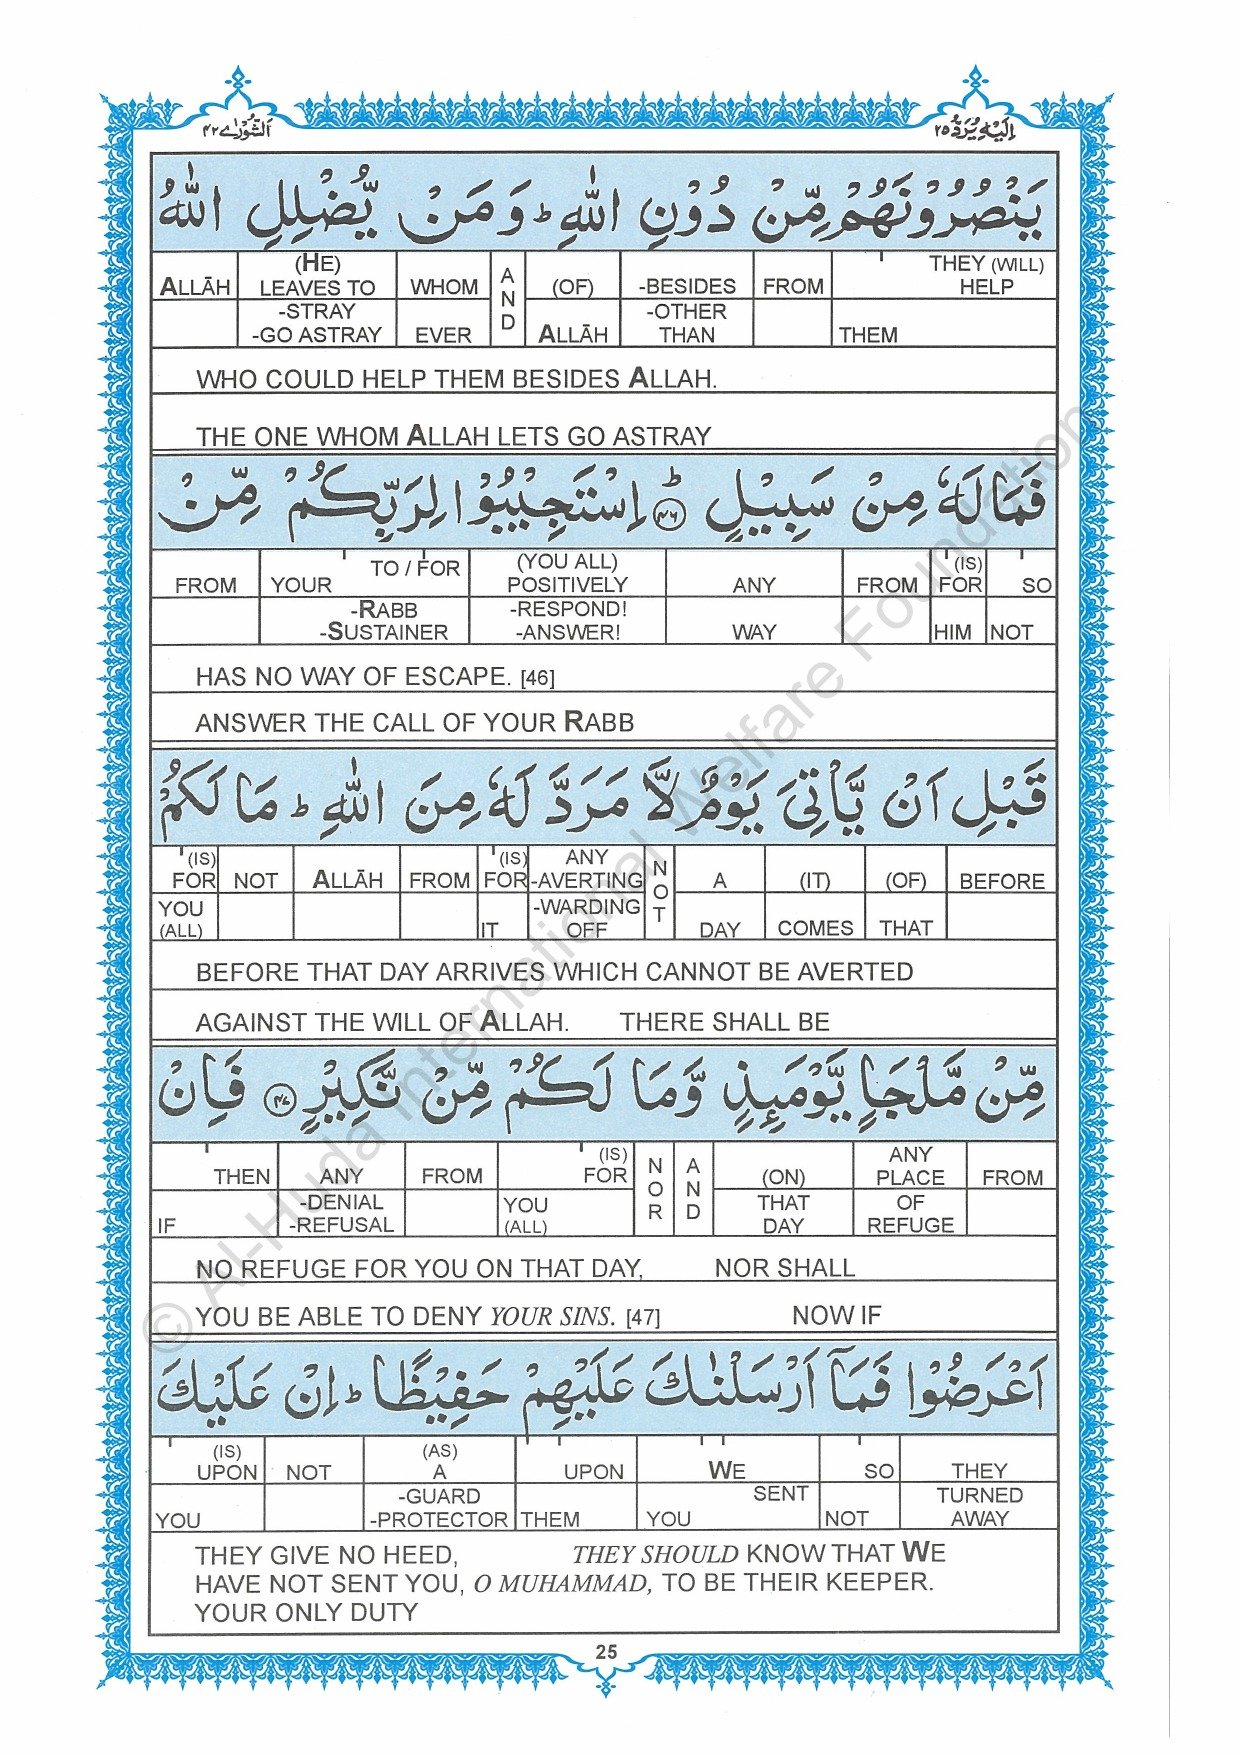 اَلشُّوْرٰى ٤٢
اِلَيْهِ يُرَدُّ ٢٥
يَنْصُرُوْنَهُمْ مِّنْ دُوْنِ اللّٰهِ ؕ وَ مَنْ يُّضْلِلِ اللّٰهُ
ALLĀH (HE) LEAVES TO WHOM AND (OF) -BESIDES FROM THEY (WILL) HELP
-STRAY -GO ASTRAY EVER ALLĀH -OTHER THAN THEM
WHO COULD HELP THEM BESIDES ALLAH.
THE ONE WHOM ALLAH LETS GO ASTRAY
فَمَا لَهٗ مِنْ سَبِيْلٍ ؕ ﴿٤٦﴾ اِسْتَجِيْبُوْا لِرَبِّكُمْ مِّنْ
FROM YOUR TO / FOR (YOU ALL) POSITIVELY ANY FROM (IS) FOR SO
-RABB -SUSTAINER -RESPOND! -ANSWER! WAY HIM NOT
HAS NO WAY OF ESCAPE. [46]
ANSWER THE CALL OF YOUR RABB
قَبْلِ اَنْ يَّاْتِىَ يَوْمٌ لَّا مَرَدَّ لَهٗ مِنَ اللّٰهِ ؕ مَا لَكُمْ
(IS) FOR NOT ALLĀH FROM (IS) FOR ANY -AVERTING NOT A (IT) (OF) BEFORE
YOU (ALL) IT -WARDING OFF DAY COMES THAT
BEFORE THAT DAY ARRIVES WHICH CANNOT BE AVERTED
AGAINST THE WILL OF ALLAH. THERE SHALL BE
مِّنْ مَّلْجَاٍ يَّوْمَئِذٍ وَّ مَا لَكُمْ مِّنْ نَّكِيْرٍ ﴿٤٧﴾ فَاِنْ
THEN ANY FROM (IS) FOR NOR AND (ON) ANY PLACE FROM
IF -DENIAL -REFUSAL YOU (ALL) THAT DAY OF REFUGE
NO REFUGE FOR YOU ON THAT DAY, NOR SHALL
YOU BE ABLE TO DENY YOUR SINS. [47] NOW IF
اَعْرَضُوْا فَمَاۤ اَرْسَلْنٰكَ عَلَيْهِمْ حَفِيْظًا ؕ اِنْ عَلَيْكَ
(IS) UPON NOT (AS) A UPON WE SO THEY
YOU -GUARD -PROTECTOR THEM SENT YOU NOT TURNED AWAY
THEY GIVE NO HEED, THEY SHOULD KNOW THAT WE
HAVE NOT SENT YOU, O MUHAMMAD, TO BE THEIR KEEPER.
YOUR ONLY DUTY
25
© Al-Huda International Welfare Foundation